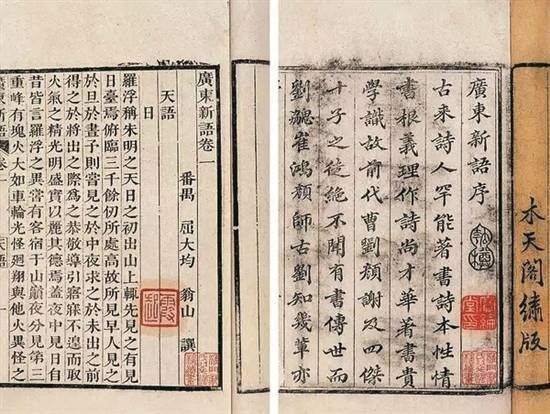 水天閣繡版
廣東新語序
古来詩人罕能著書詩本性情
書根義理作詩尚才華著書貴
學識故前代曹劉顏謝及四傑
十子之徒絶不聞有書傳世而
劉勰崔鴻顏師古劉知幾輩亦
廣東新語卷一
番禺 屈大均 翁山 譔
天語
日
羅浮稱朱明之天日之初出山上輒先見之有見
日臺焉俯臨三千餘仞所處高故所見早人見之
於旦於晝子則嘗見之於中夜求之於未出之前
得之於將出之際為之恭敬導引寤寐不遑而取
火氣之精光明盛實以麗其德焉蓋夜中見日自
昔皆言羅浮之異嘗有客宿于山巔夜分見第三
重峰有塊火大如車輪光怪廻翔與他火異怪之
廣東新語 卷一 天語